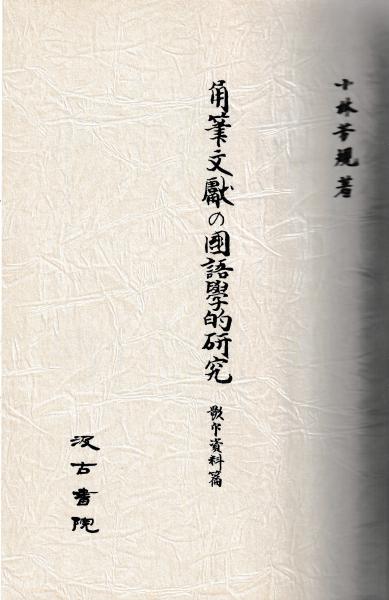 小林芳規著
角筆文獻の國語學的研究
影印資料篇
汲古書院